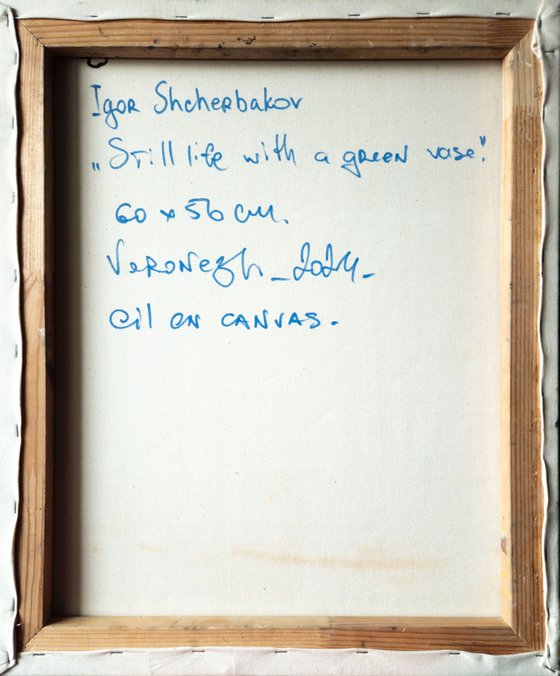 Igor Shcherbakov
„Still life with a green vase."
60 x 50 cm.
Voronezh_2024_
Oil on canvas.